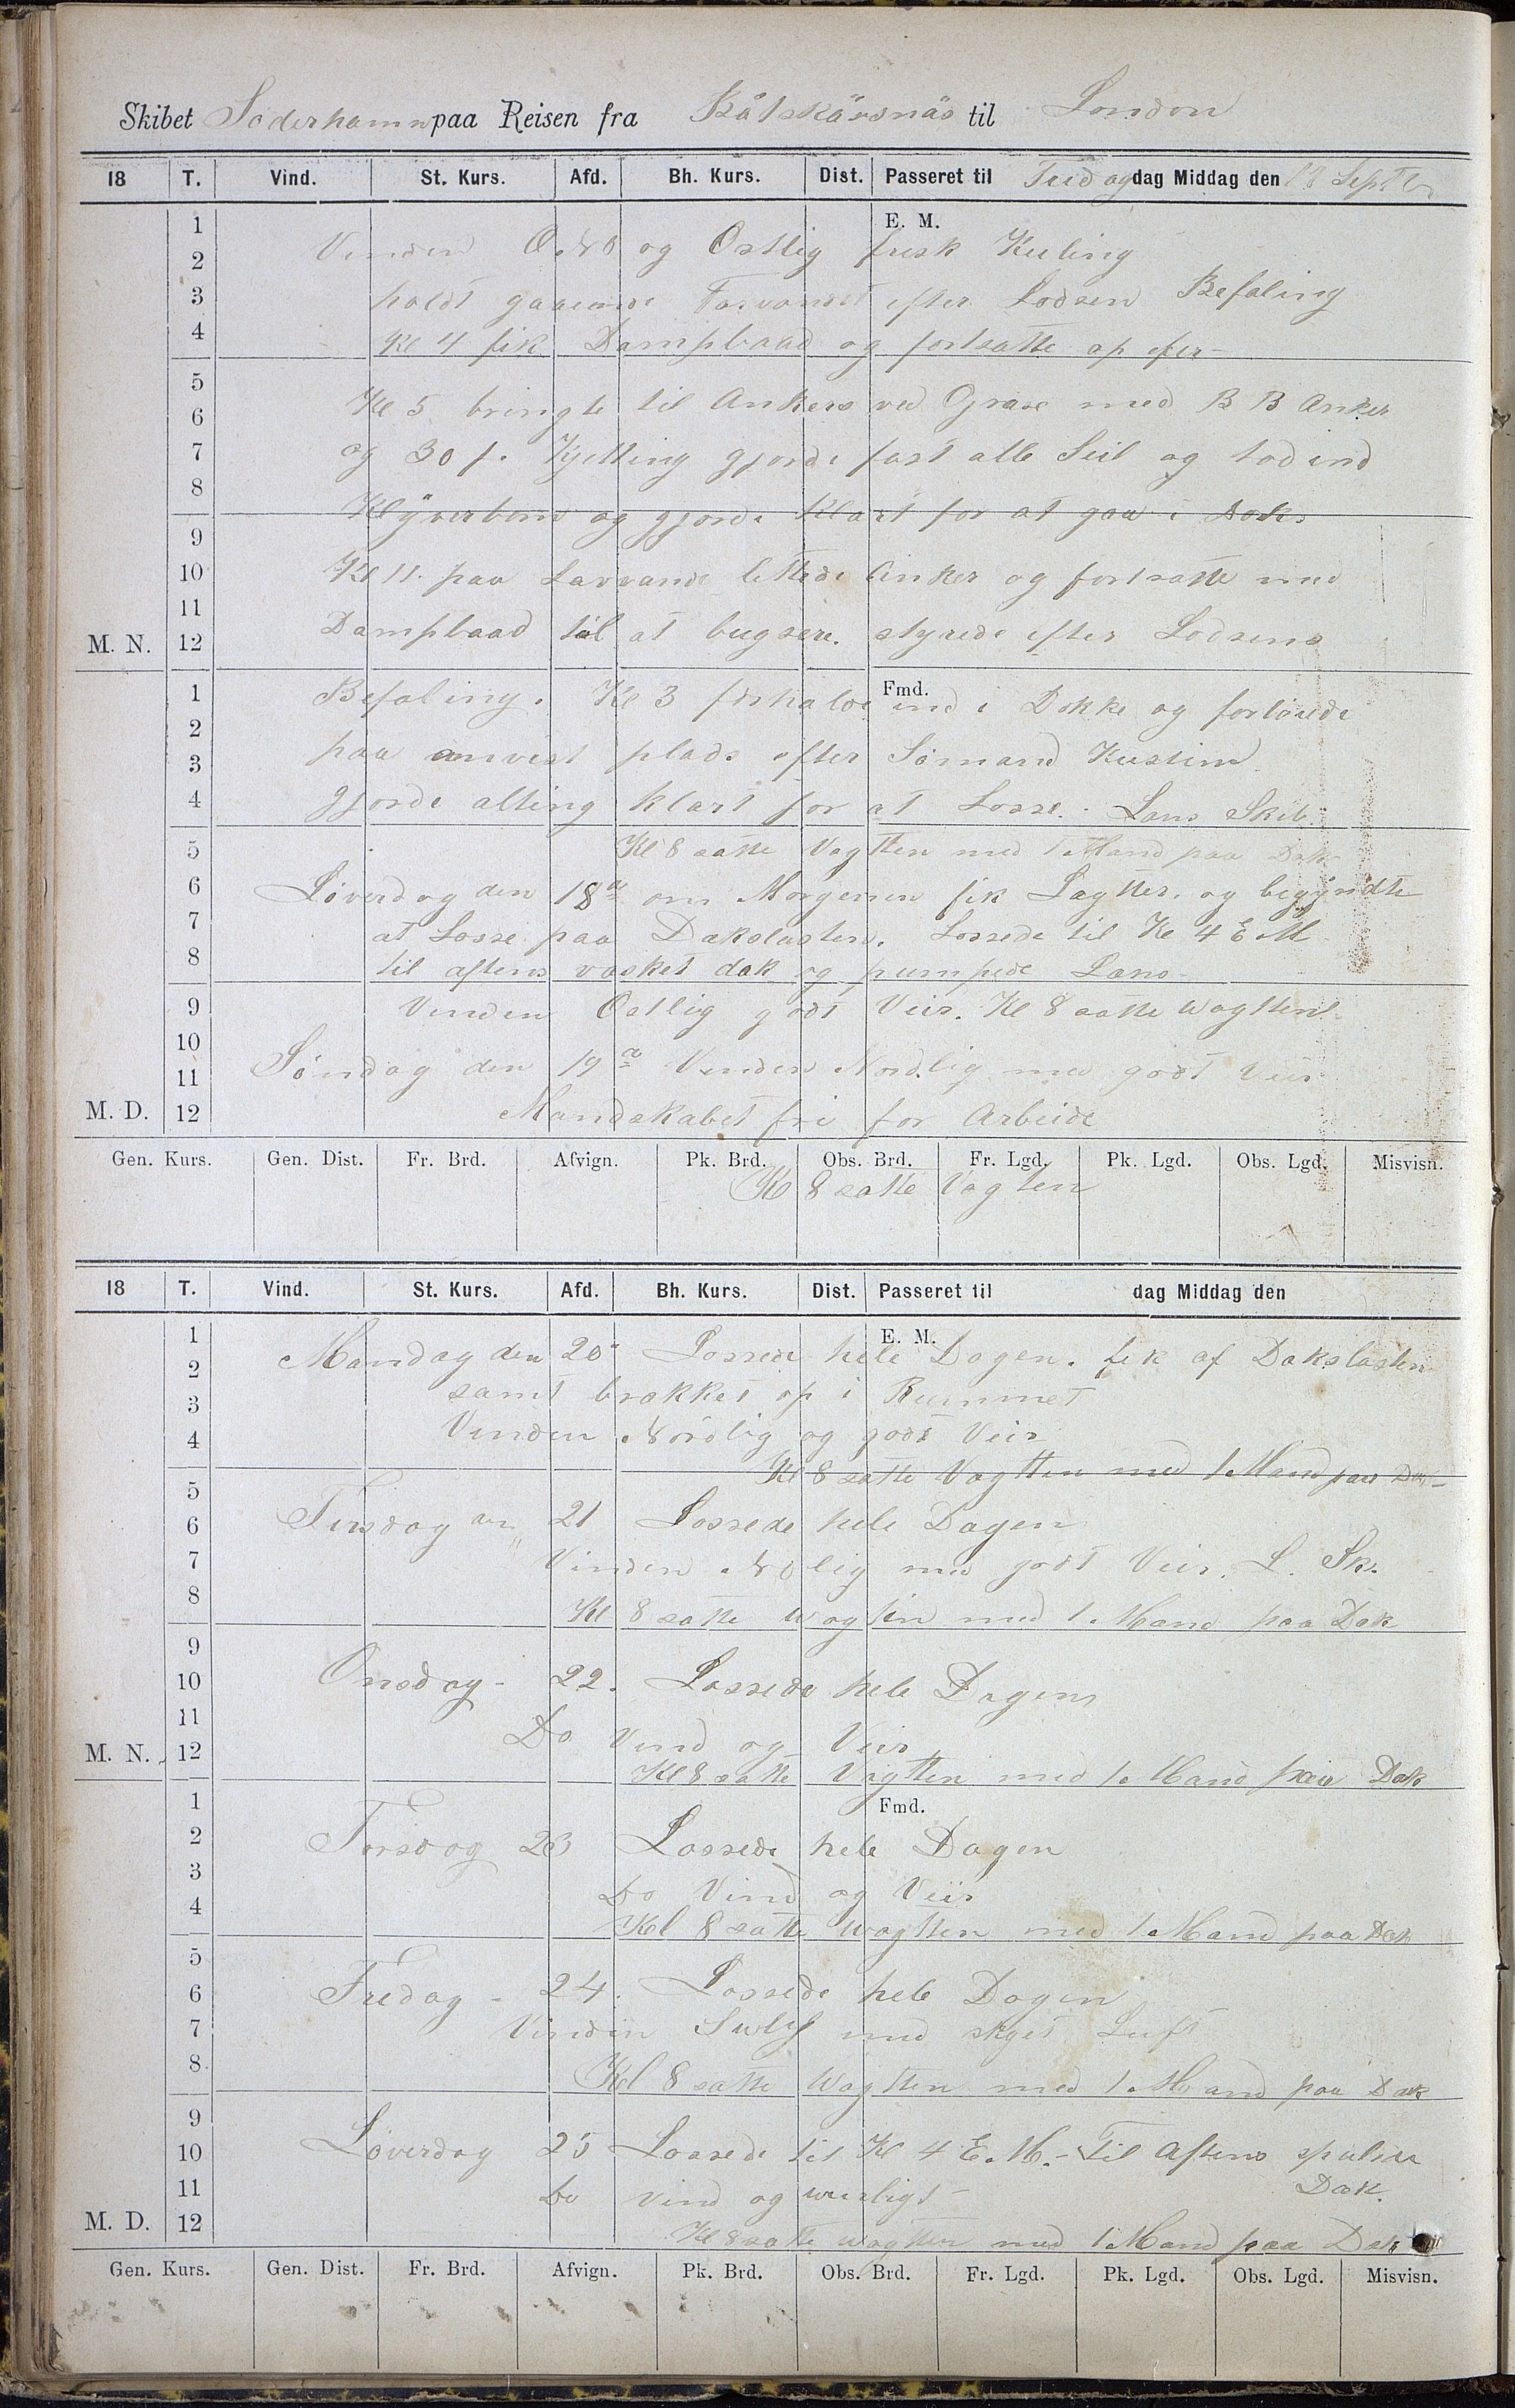 Skibet Söderhamn paa Reisen fra Båtskärsnäs til London
18 T. Vind. St. Kurs. Afd. Bh. Kurs. Dist. Passeret til Fredag dag Middag den Septbr
E. M.
1
2 Vinden O.N.O og Ostlig frisk Kuling
3 holdt gaaende Farvandet efter Lodsen Befaling
4 Kl 4 fik Dampbaad og fortsatte op
5
6 Kl 5 bringte til Ankers ved Grave med B B Anker
7 og 30 f. Kjetting gjorde fast alle Seil og tod ind
8
Klÿverbom og gjorde Klart for at gaa i Dok.
9
10 Kl 11. paa Lavvande lettede Anker og fortsatte med
11
M. N. 12 Dampbaad til at bugsere. styrede efter Lodsens
Fmd.
1 Befaling. Kl 3 forhalde ind i Dokke og fortøiede
2
3 paa anvest plads efter Sömand Kustim
4 gjorde alting klart for at Losse. Lens Skib.
5 Kl 8 satte Vagtten med 1 Mand paa Dæk
6 Löverdag den 18de om Morgenen fik Lægtter. og begÿndte
7 at Losse paa Dækslasten. Lossede til Kl 4 E M
8 til aftens vasket dæk og pumpede Læns
9 Vinden Ostlig godt Veir. Kl 8 satte Wagtten
10
11 Söndag den 19de Vinden Nordlig med godt Veir
M. D. 12 Mandskabet fri for Arbeide
Gen. Kurs. Gen. Dist. Fr. Brd. Afvign. Pk. Brd. Obs. Brd. Fr. Lgd. Pk. Lgd. Obs. Lgd. Misvisn.
Kl 8 satte Vagten
18 T. Vind. St. Kurs. Afd. Bh. Kurs. Dist. Passeret til dag Middag den
E. M.
1 Mandag den 20 Lossede hele Dagen. fik af Dækslasten
2
3 samt brækket op i Rummet
4 Vinden Nordlig og godt Veir
Kl 8 satte Vagtten med 1 Mand paa Dæk
5
6 Tirsdag den 21 Lossede hele Dagen
7 Vinden NOlig med godt Veir. L. Sk.
8 Kl 8 satte Wagten med 1 Mand paa Dæk
9
10 Onsdag - 22. Lossede hele Dagen
11
M. N. 12 Do Vind og Veir
Kl 8 satte Vagtten med 1. Mand paa Dæk
Fmd.
1
2 Torsdag 23 Lossede hele Dagen
3
4 Do Vind og Veir
Kl 8 satte Wagtten med 1 Mand paa Dæk
5
6 Fredag - 24. Lossede hele Dagen
7 Vinden Swlig med skyet Luft
8. Kl 8 satte Wagtten med 1 Mand paa Dæk
9
10 Löverdag 25 Lossede til Kl 4 E. M. - Til Aftens spulede
11 Do Vind og weirligt - Dæk.
M. D. 12 Kl 8 satte Wagtten med 1 Mand paa Dæk
Gen. Kurs. Gen. Dist. Fr. Brd. Afvign. Pk. Brd. Obs. Brd. Fr. Lgd. Pk. Lgd. Obs. Lgd. Misvisn.